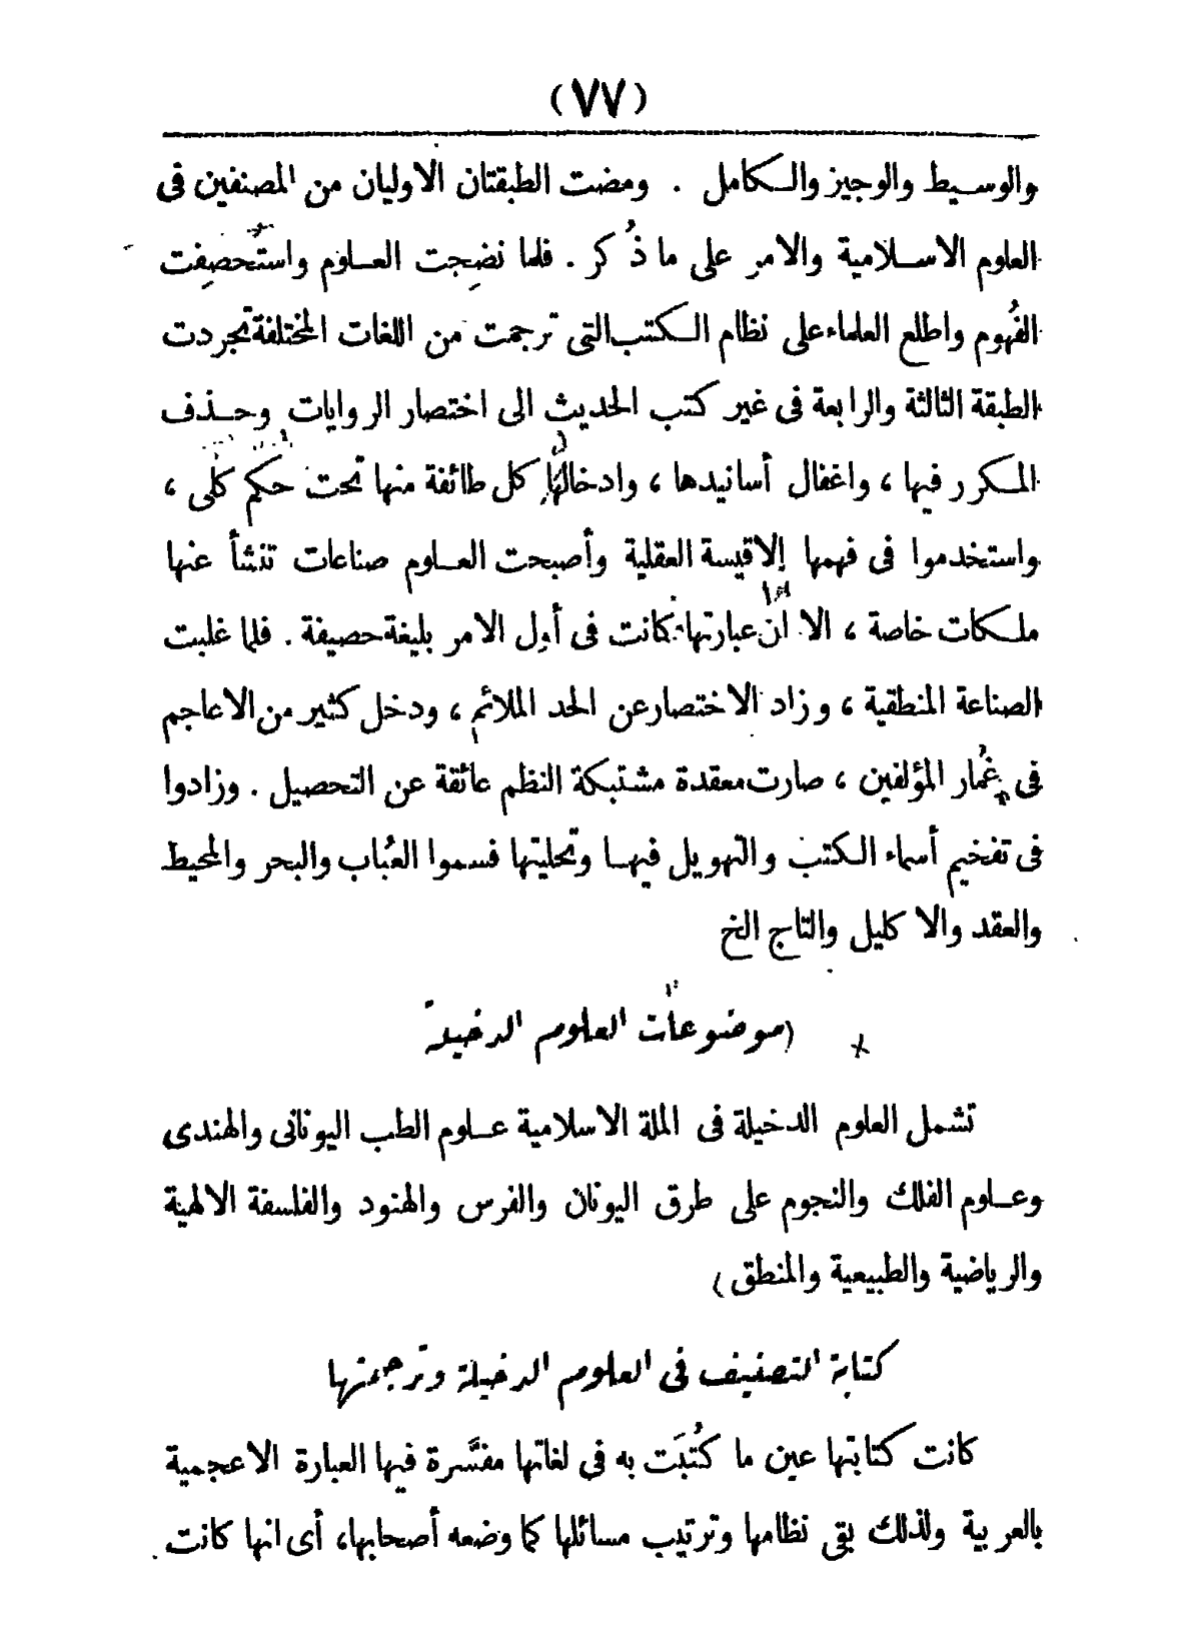 (٧٧)
والوسيط والوجيز والكامل . ومضت الطبقتان الاوليان من المصنفين فى
العلوم الاسلامية والامر على ما ذُكر . فلما نضِجت العلوم واستَحصِفت
الفُهوم واطلع العلماء على نظام الكتب التى ترجمت من اللغات المختلفة تجردت
الطبقة الثالثة والرابعة فى غير كتب الحديث الى اختصار الروايات وحذف
المكرر فيها ، واغفال أسانيدها ، وادخالها كل طائفة منها تحت حكم كلى ،
واستخدموا فى فهمها الاقيسة العقلية وأصبحت العلوم صناعات تنشأ عنها
ملكات خاصة ، الا ان عبارتها كانت فى أول الامر بليغة حصيفة . فلما غلبت
الصناعة المنطقية ، وزاد الاختصار عن الحد الملائم ، ودخل كثير من الاعاجم
فى غُمار المؤلفين ، صارت معقدة مشتبكة النظم عائقة عن التحصيل . وزادوا
فى تفخيم أسماء الكتب والتهويل فيها وتحليتها فسموا العُباب والبحر والمحيط
والعقد والاكليل والتاج الخ
(موضوعات العلوم الدخيلة
تشمل العلوم الدخيلة فى الملة الاسلامية علوم الطب اليونانى والهندى
وعلوم الفلك والنجوم على طرق اليونان والفرس والهنود والفلسفة الالهية
والرياضية والطبيعية والمنطق)
كتابة التصنيف فى العلوم الدخيلة وترجمتها
كانت كتابتها عين ما كُتبَت به فى لغاتها مفسَّرة فيها العبارة الاعجمية
بالعربية ولذلك بقى نظامها وترتيب مسائلها كما وضعه أصحابها، أى انها كانت